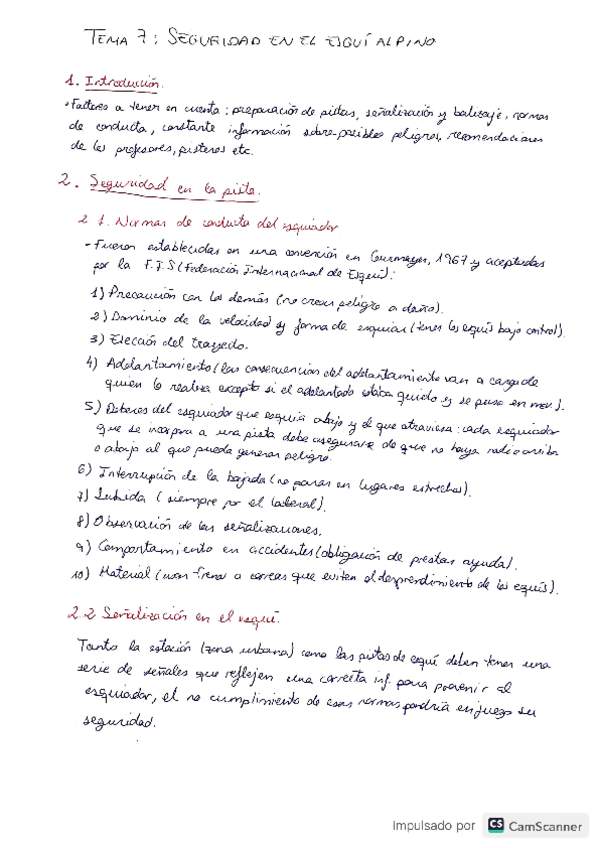 TEMA 7: SEGURIDAD EN EL ESQUÍ ALPINO
1. Introducción.
• Factores a tener en cuenta: preparación de pistas, señalización y balizaje, normas
de conducta, constante información sobre posibles peligros, recomendaciones
de los profesores, pisteros etc.
2. Seguridad en la pista.
2.1. Normas de conducta del esquiador
- Fueron establecidas en una convención en Courmayer, 1967 y aceptadas
por la F.I.S (Federación Internacional de Esquí):
1) Precaución con los demás (no crear peligro o daño).
2) Dominio de la velocidad y forma de esquiar (tener los esquís bajo control).
3) Elección del trayecto.
4) Adelantamiento (las consecuencias del adelantamiento van a cargo de
quien lo realiza excepto si el adelantado estaba quieto y se puso en mov.).
5) Deberes del esquiador que esquía abajo y el que atraviesa: cada esquiador
que se incorpora a una pista debe asegurarse de que no haya nadie arriba
o abajo al que pueda generar peligro.
6) Interrupción de la bajada (no parar en lugares estrechos).
7) Subida (siempre por el lateral).
8) Observación de las señalizaciones.
9) Comportamiento en accidentes (obligación de prestar ayuda).
10) Material (usar frenos o correas que eviten el desprendimiento de los esquís).
2.2 Señalización en el esquí.
Tanto la estación (zona urbana) como las pistas de esquí deben tener una
serie de señales que reflejen una correcta inf. para prevenir al
esquiador, el no cumplimiento de esas normas pondría en juego su
seguridad.
Impulsado por CS CamScanner